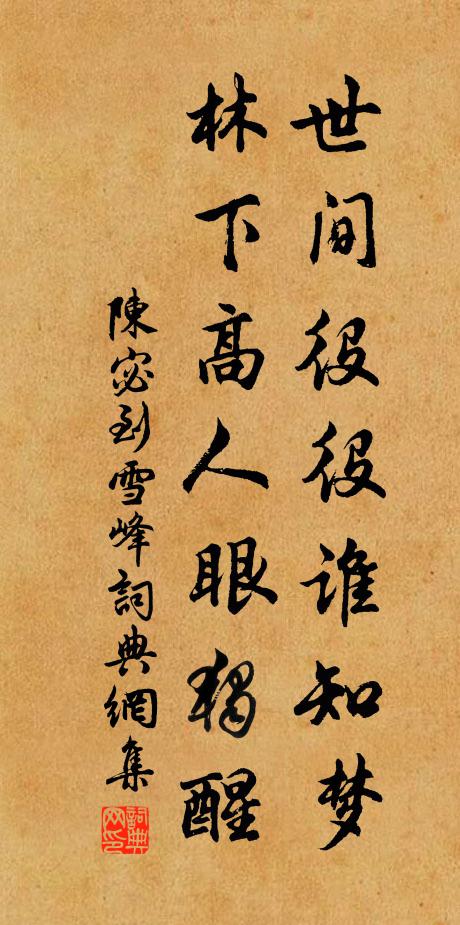 世间役役谁知梦
林下高人眼独醒
陳宓到雪峰詞典網集
詞典网印